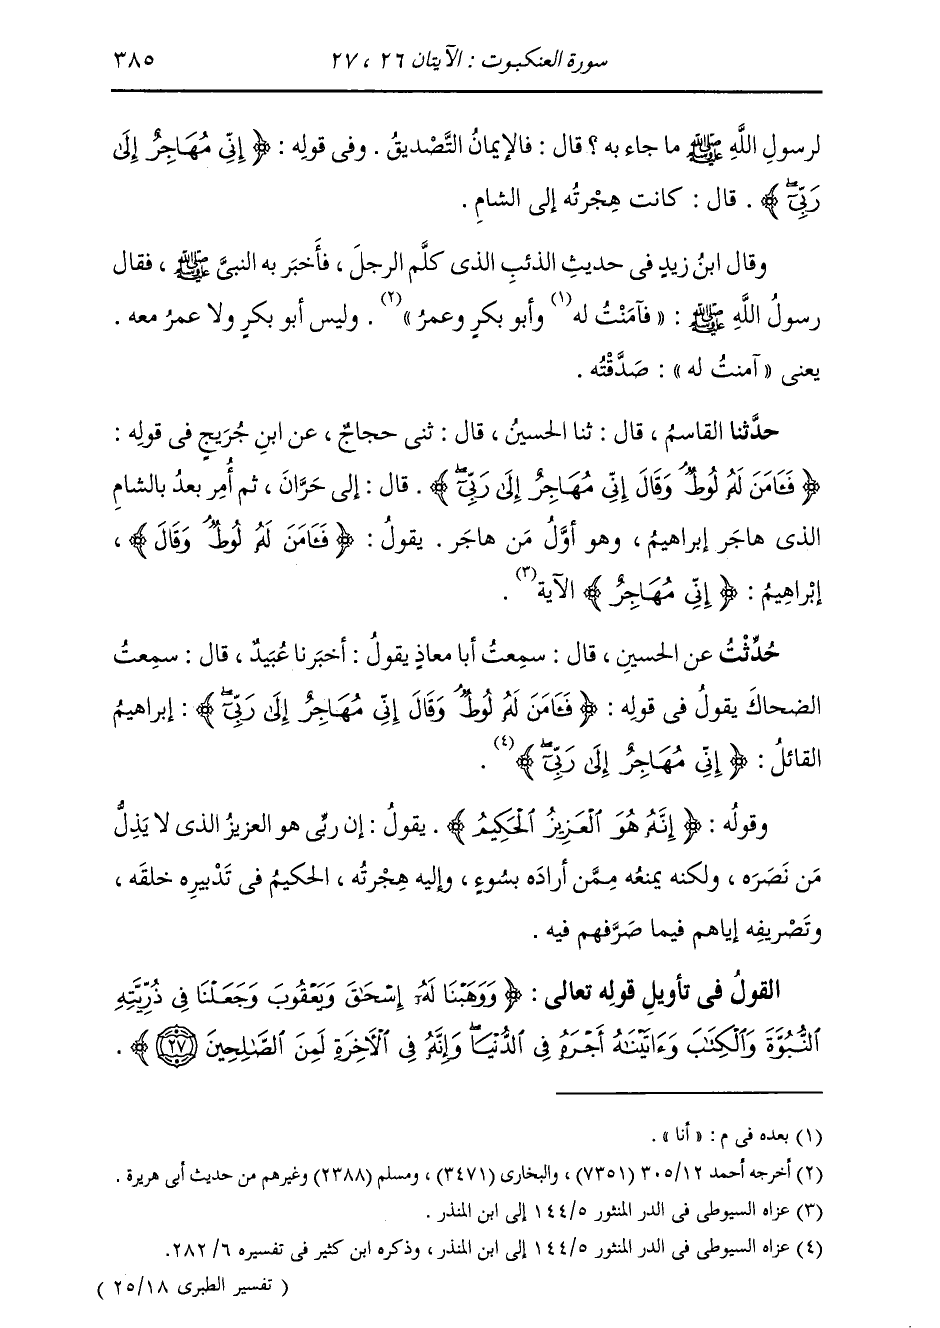 سورة العنكبوت : الآيتان ٢٦ ، ٢٧ ٣٨٥
لرسولِ اللَّهِ ﷺ ما جاء به ؟ قال : فالإيمانُ التَّصْديقُ . وفى قولِه : ﴿ إِنِّي مُهَاجِرٌ إِلَىٰ
رَبِّيٓۖ ﴾ . قال : كانت هِجْرتُه إلى الشامِ .
وقال ابنُ زيدٍ فى حديثِ الذئبِ الذى كلَّم الرجلَ ، فأَخبَر به النبىَّ ﷺ ، فقال
رسولُ اللَّهِ ﷺ : « فآمَنْتُ له(١) وأبو بكرٍ وعمرُ »(٢) . وليس أبو بكرٍ ولا عمرُ معه .
يعنى « آمنتُ له » : صَدَّقْتُه .
حدَّثنا القاسمُ ، قال : ثنا الحسينُ ، قال : ثنى حجاجٌ ، عن ابنِ جُرَيجٍ فى قولِه :
﴿ فَـَٔامَنَ لَهُۥ لُوطٌۘ وَقَالَ إِنِّي مُهَاجِرٌ إِلَىٰ رَبِّيٓۖ ﴾ . قال : إلى حَرَّانَ ، ثم أُمِر بعدُ بالشامِ
الذى هاجَر إبراهيمُ ، وهو أوَّلُ مَن هاجَر . يقولُ : ﴿ فَـَٔامَنَ لَهُۥ لُوطٌۘ وَقَالَ ﴾ ،
إبْراهِيمُ : ﴿ إِنِّي مُهَاجِرٌ ﴾ الآية(٣) .
حُدِّثْتُ عن الحسينِ ، قال : سمِعتُ أبا معاذٍ يقولُ : أخبَرنا عُبَيدٌ ، قال : سمِعتُ
الضحاكَ يقولُ فى قولِه : ﴿ فَـَٔامَنَ لَهُۥ لُوطٌۘ وَقَالَ إِنِّي مُهَاجِرٌ إِلَىٰ رَبِّيٓۖ ﴾ : إبراهيمُ
القائلُ : ﴿ إِنِّي مُهَاجِرٌ إِلَىٰ رَبِّيٓۖ ﴾(٤) .
وقولُه : ﴿ إِنَّهُۥ هُوَ ٱلْعَزِيزُ ٱلْحَكِيمُ ﴾ . يقولُ : إن ربِّى هو العزيزُ الذى لا يَذِلُّ
مَن نَصَرَه ، ولكنه يمنعُه مِمَّن أرادَه بسُوءٍ ، وإليه هِجْرتُه ، الحكيمُ فى تَدْبيرِه خلقَه ،
وتَصْريفِه إياهم فيما صَرَّفهم فيه .
القولُ فى تأويلِ قولِه تعالى : ﴿ وَوَهَبْنَا لَهُۥٓ إِسْحَٰقَ وَيَعْقُوبَ وَجَعَلْنَا فِي ذُرِّيَّتِهِ
ٱلنُّبُوَّةَ وَٱلْكِتَٰبَ وَءَاتَيْنَٰهُ أَجْرَهُۥ فِي ٱلدُّنْيَاۖ وَإِنَّهُۥ فِي ٱلْأٓخِرَةِ لَمِنَ ٱلصَّٰلِحِينَ ۝٢٧ ﴾ .
(١) بعده فى م : « أنا » .
(٢) أخرجه أحمد ٣٠٥/١٢ (٧٣٥١) ، والبخارى (٣٤٧١) ، ومسلم (٢٣٨٨) وغيرهم من حديث أبى هريرة .
(٣) عزاه السيوطى فى الدر المنثور ١٤٤/٥ إلى ابن المنذر .
(٤) عزاه السيوطى فى الدر المنثور ١٤٤/٥ إلى ابن المنذر ، وذكره ابن كثير فى تفسيره ٦/ ٢٨٢.
( تفسير الطبرى ٢٥/١٨ )